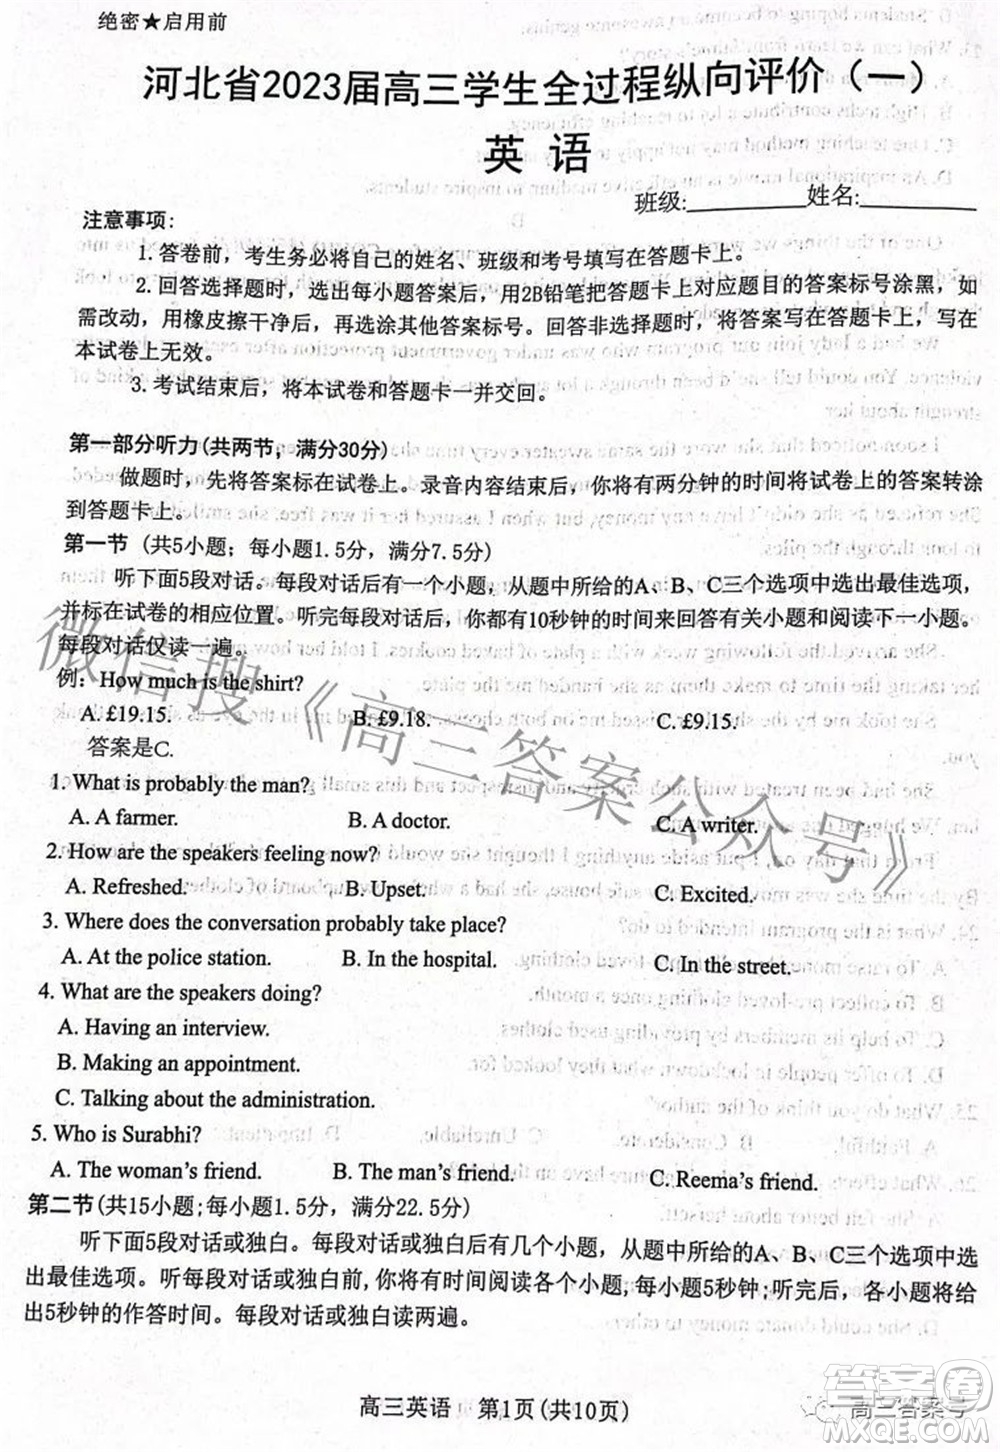 绝密★启用前
河北省2023届高三学生全过程纵向评价（一）
英 语
班级:________ 姓名:________
注意事项：
1. 答卷前，考生务必将自己的姓名、班级和考号填写在答题卡上。
2. 回答选择题时，选出每小题答案后，用2B铅笔把答题卡上对应题目的答案标号涂黑，如
需改动，用橡皮擦干净后，再选涂其他答案标号。回答非选择题时，将答案写在答题卡上，写在
本试卷上无效。
3. 考试结束后，将本试卷和答题卡一并交回。
第一部分听力(共两节，满分30分)
做题时，先将答案标在试卷上。录音内容结束后，你将有两分钟的时间将试卷上的答案转涂
到答题卡上。
第一节 (共5小题；每小题1.5分，满分7.5分)
听下面5段对话。每段对话后有一个小题，从题中所给的A、B、C三个选项中选出最佳选项，
并标在试卷的相应位置。听完每段对话后，你都有10秒钟的时间来回答有关小题和阅读下一小题。
每段对话仅读一遍。
例：How much is the shirt?
A. £19.15. B. £9.18. C. £9.15.
答案是C.
1. What is probably the man?
A. A farmer. B. A doctor. C. A writer.
2. How are the speakers feeling now?
A. Refreshed. B. Upset. C. Excited.
3. Where does the conversation probably take place?
A. At the police station. B. In the hospital. C. In the street.
4. What are the speakers doing?
A. Having an interview.
B. Making an appointment.
C. Talking about the administration.
5. Who is Surabhi?
A. The woman's friend. B. The man's friend. C. Reema's friend.
第二节(共15小题;每小题1.5分，满分22.5分)
听下面5段对话或独白。每段对话或独白后有几个小题，从题中所给的A、B、C三个选项中选
出最佳选项。听每段对话或独白前,你将有时间阅读各个小题,每小题5秒钟;听完后，各小题将给
出5秒钟的作答时间。每段对话或独白读两遍。
高三英语 第1页(共10页)
微信搜《高三答案公众号》
高三答案号
答案圈
MXQE.COM